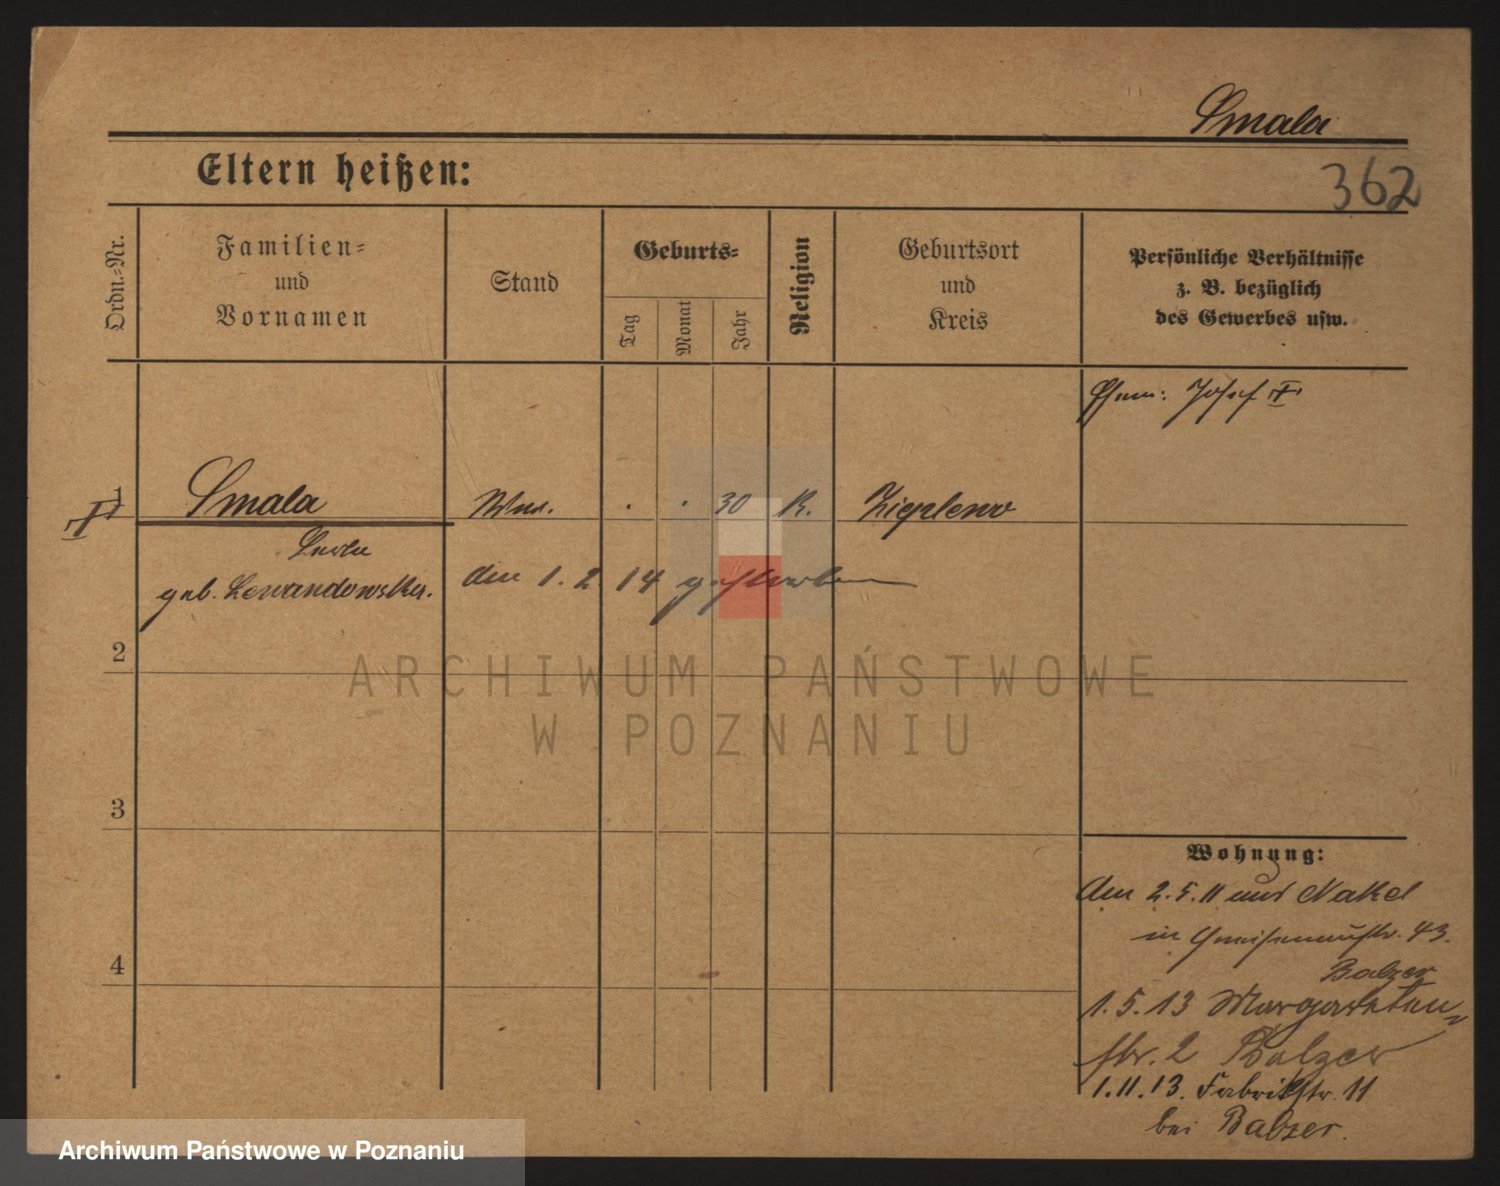 Smala
362
Eltern heißen:
Ordn.-Nr.
Familien-
und
Vornamen
Stand
Geburts-
Tag
Monat
Jahr
Religion
Geburtsort
und
Kreis
Persönliche Verhältnisse
z. B. bezüglich
des Gewerbes usw.
Ehem: Josef
1
Smala
Ww. . . 30 K.
geb. Lewandowska.
den 1. 2. 14 gestorben
2
ARCHIWUM PAŃSTWOWE
W POZNANIU
3
4
Wohnung:
den 2.5.11 aus Nakel
in Gneisenaustr. 43.
Balzer
1.5.13 Margareten-
str. 2 Balzer
1.11.13. Fabrikstr. 11
bei Balzer.
Archiwum Państwowe w Poznaniu